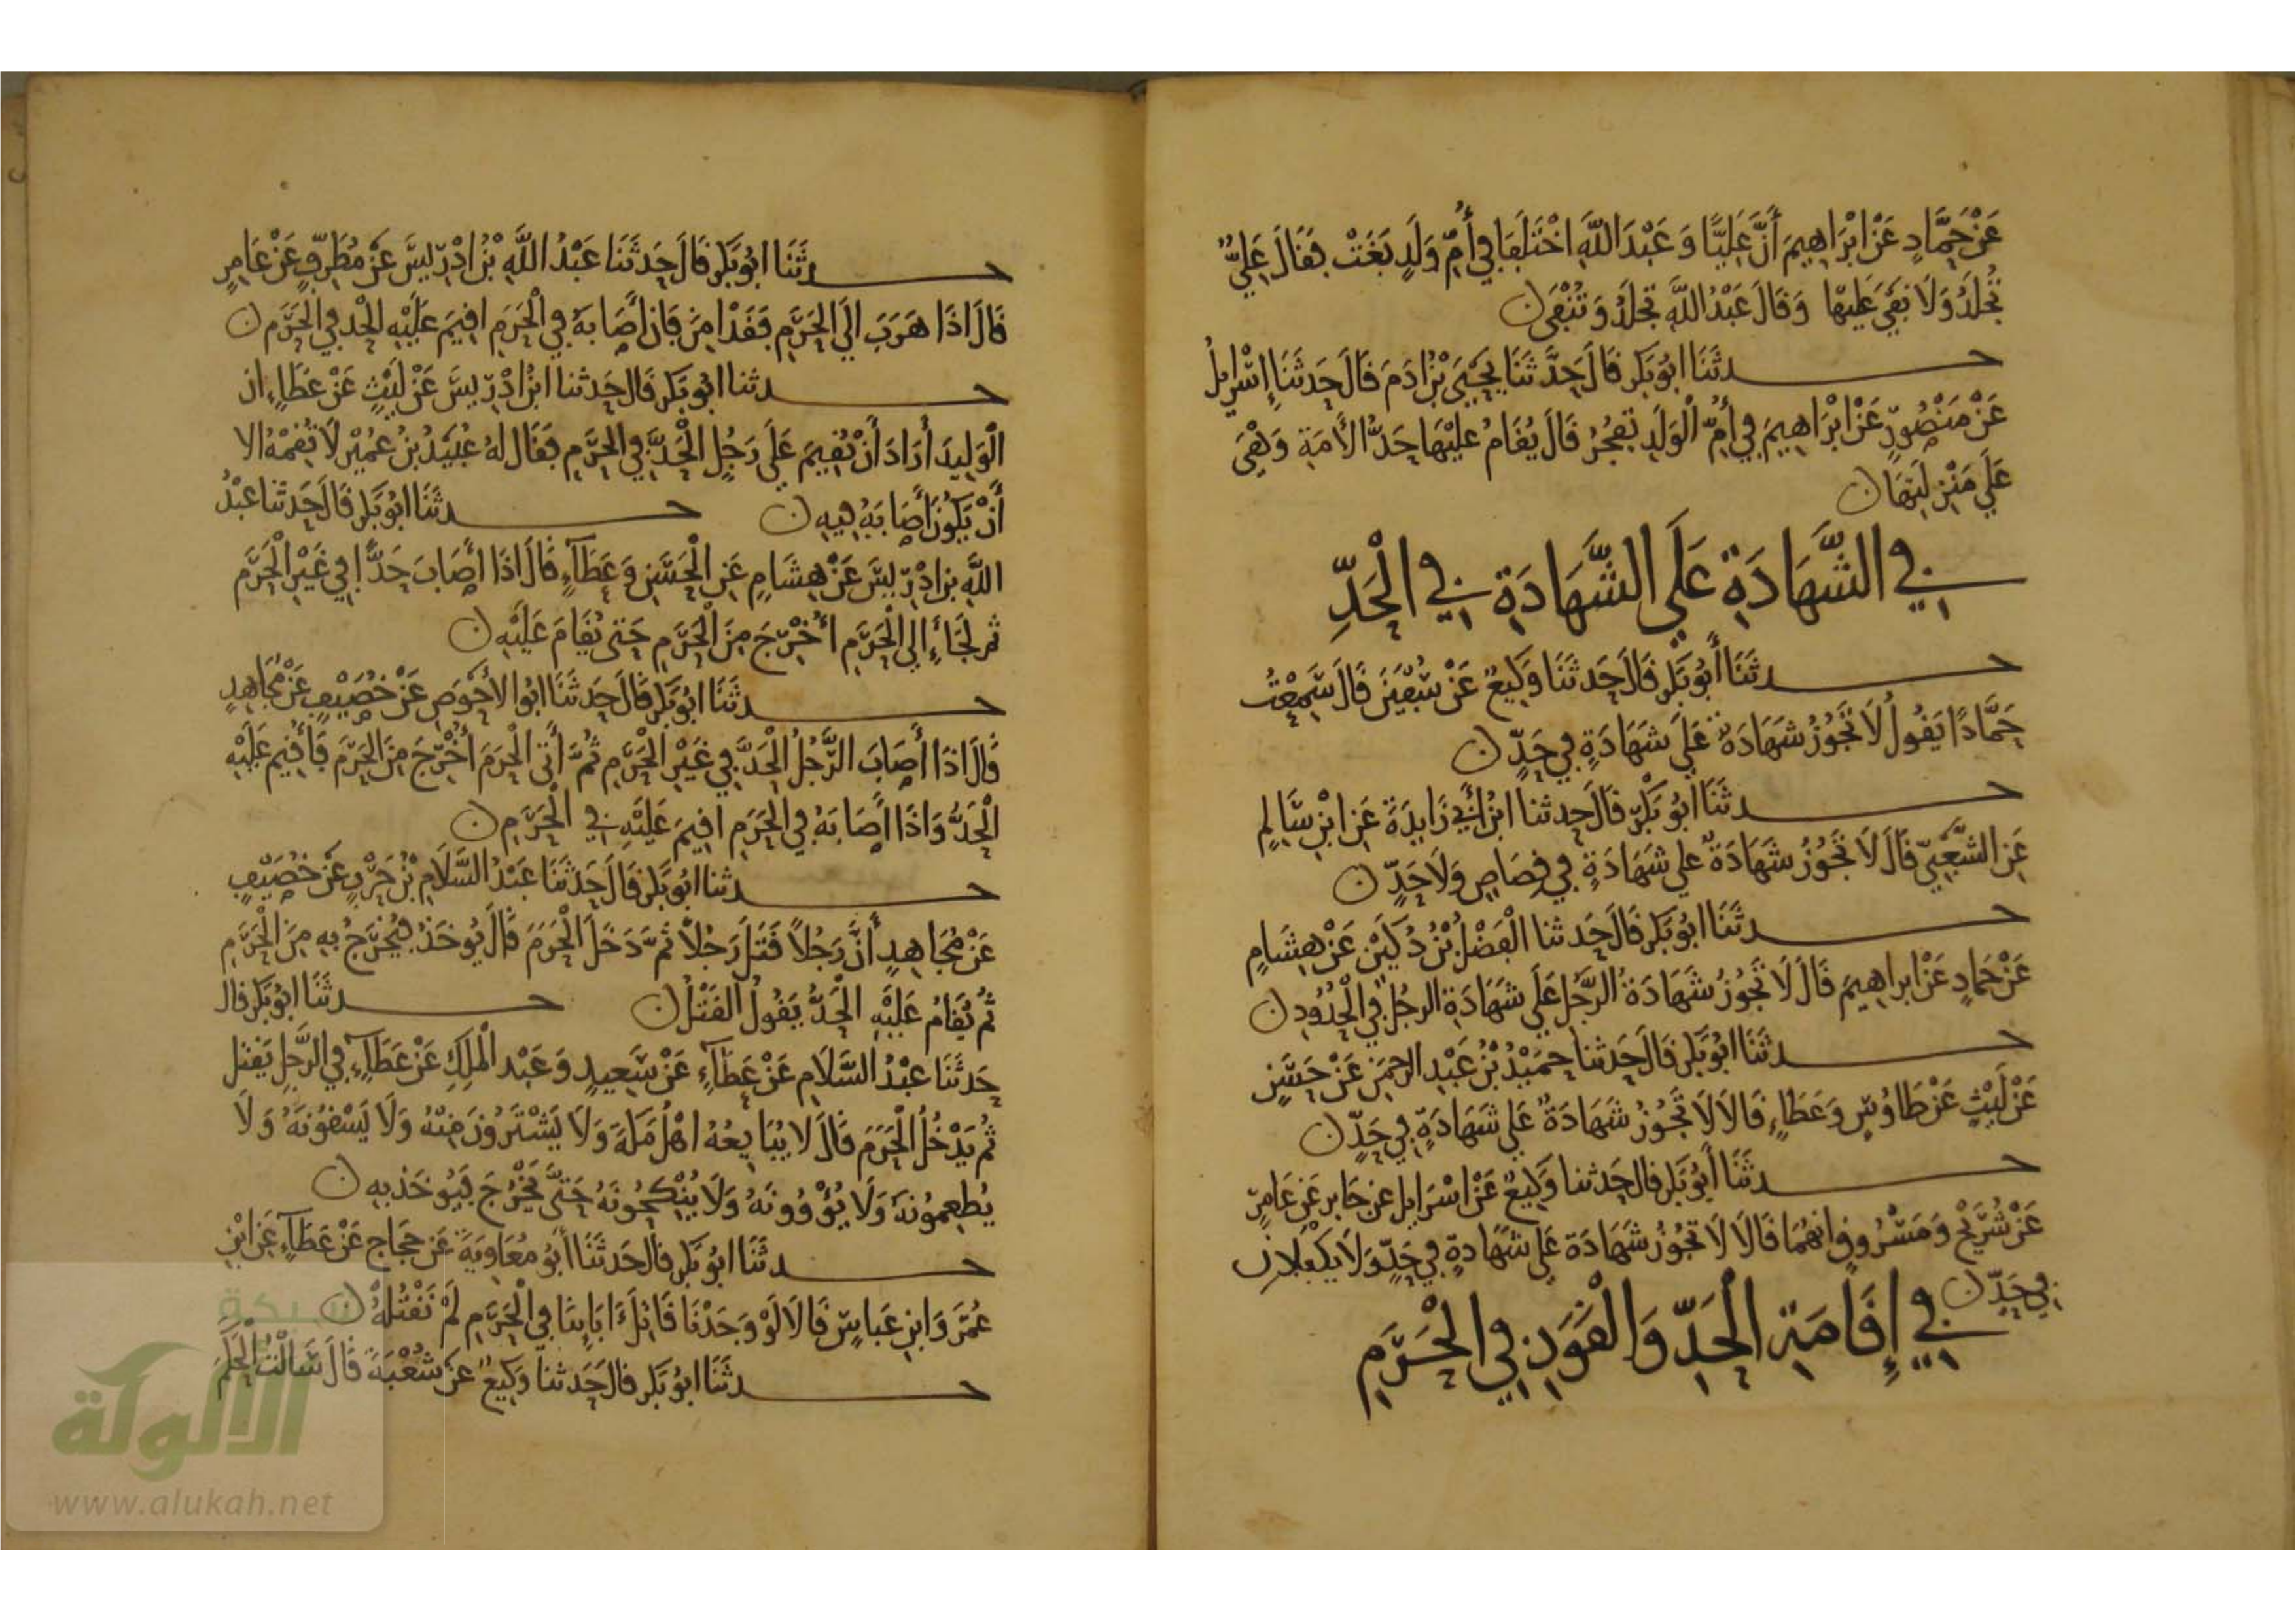 عَنْ حَمَّادٍ عَنْ ابْرَاهِيمَ أَنَّ عَلِيًّا وَ عَبْدَ اللَّهِ اخْتَلَفَا فِي أُمِّ وَلَدٍ بَغَتْ فَقَالَ عَلِيٌّ
تُجْلَدُ وَلَا نَفْيَ عَلَيْهَا وَقَالَ عَبْدُ اللَّهِ تُجْلَدُ وَتُنْفَى ن
حدثَنَا ابُو بَكْرٍ قَالَ حَدَّثَنَا يَحْيَى بْنُ ادَمَ قَالَ حَدثَنَا إِسْرايلُ
عَنْ مَنْصُورٍ عَنْ ابْرَاهِيمَ فِي أُمِّ الْوَلَدِ تَفْجُرُ قَالَ يُقَامُ عَلَيْهَا حَدُّ الأَمَةِ وَهْيَ
عَلَى مَنْزِلَتِهَا ن
في الشَّهَادَةِ عَلَى الشَّهَادَةِ فِي الْحَدِّ
حدثَنَا أَبُو بَكْرٍ قَالَ حَدثَنَا وَكِيعٌ عَنْ سُفْيَنَ قَالَ سَمِعْتُ
حَمَّادًا يَقُولُ لَا تَجُوزُ شَهَادَةٌ عَلَى شَهَادَةٍ فِي حَدٍّ ن
حدثَنَا ابُو بَكْرٍ قَالَ حَدثنا ابْنُ أَبِي زَايِدَةَ عَنِ ابْنِ سَالِمٍ
عَنِ الشَّعْبِيِّ قَالَ لَا تَجُوزُ شَهَادَةٌ عَلَى شَهَادَةٍ فِي قِصَاصٍ وَلَا حَدٍّ ن
حدثَنَا ابُو بَكْرٍ قَالَ حَدثنا الْفَضْلُ بْنُ دُكَيْنٍ عَنْ هِشَامٍ
عَنْ حَمادٍ عَنْ ابراهِيمَ قَالَ لَا تَجُوزُ شَهَادَةُ الرَّجُلِ عَلَى شَهَادَةِ الرجُلِ فِي الْحُدُودِ ن
حدثَنَا ابُو بَكْرٍ قَالَ حَدثنا حمَيْدُ بْنُ عَبْدِ الرحمَنِ عَنْ حَسَنٍ
عَنْ لَيْثٍ عَنْ طَاوُسٍ وَعَطَاءٍ قَالَا لَا تَجُوزُ شَهَادَةٌ عَلَى شَهَادَةٍ فِي حَدٍّ ن
حدثَنَا أَبُو بَكْرٍ قال حَدثنا وَكِيعٌ عَنْ اسْرَايل عن جَابر عَنْ عَامِرٍ
عَنْ شُرَيْحٍ وَمَسْرُوقٍ انهُمَا قَالَا لَا تَجُوزُ شَهَادَة عَلَى شَهَادةٍ فِي حَدٍّ وَلَا يَكْفلانِ
فِي حَدٍّ ن
في إِقَامَةِ الْحَدِّ وَالْقَوَدِ فِي الْحَرَمِ
حدثَنَا ابُو بَكْرٍ قَالَ حَدثَنَا عَبْدُ اللَّهِ بْنُ ادْرِيسَ عَنْ مُطَرِّفٍ عَنْ عَامِرٍ
قَالَ اذَا هَرَبَ الَى الْحَرَمِ فَقَدْ امِنَ فَإِن أَصَابَهُ فِي الْحَرَمِ اقِيمَ عَلَيْهِ الْحد فِي الْحَرَمِ ن
حدثنا ابُو بَكْرٍ قَالَ حَدثنا ابْنُ ادْرِيسَ عَنْ لَيْثٍ عَنْ عَطَاءٍ ان
الْوَلِيدَ أَرَادَ أَنْ يُقِيمَ عَلَى رَجُلٍ الْحَدَّ فِي الحَرَمِ فَقَالَ لهُ عُبَيْدُ بْنُ عُمَيْرٍ لَا تُقِمْهُ الا
أَنْ يَكُونَ أَصَابَهُ فِيهِ ن حدثَنَا ابُو بَكْرٍ قَالَ حَدثَنا عَبْدُ
اللَّهِ بن ادْرِيسَ عَنْ هِشَامٍ عَنِ الْحَسَنِ وَعَطَآءٍ قَالَ اذَا أَصَابَ حَدًّا فِي غَيْرِ الْحَرَمِ
ثم لَجَأَ إِلى الْحَرَمِ أُخْرِجَ مِنَ الْحَرَمِ حَتى يُقَامَ عَلَيْهِ ن
حدثَنَا ابُو بَكْرٍ قَالَ حَدثَنَا ابُو الاحْوَصِ عَنْ خُصَيْفٍ عَنْ مُجَاهِدٍ
قَالَ اذَا أَصَابَ الرَّجُلُ الْحَدَّ فِي غَيْرِ الْحَرَمِ ثُمَّ أَتَى الْحَرَمَ أُخْرِجَ مِنَ الْحَرَمِ فَأُقِيمَ عَلَيْهِ
الْحَدُّ وَاذَا أَصَابَهُ فِي الْحَرَمِ اقِيمَ عَلَيْهِ فِي الْحَرَمِ ن
حدثنا ابُو بَكْرٍ قَالَ حَدثَنَا عَبْدُ السَّلَامِ بْنُ حَرْبٍ عَنْ خُصَيْفٍ
عَنْ مُجَاهِدٍ أَنَّ رَجُلاً قَتَلَ رَجُلاً ثُمَّ دَخَلَ الْحَرَمَ قَالَ يُوخَذُ فَيُخْرَجُ بِهِ مِنَ الْحَرَمِ
ثُمَّ يُقَامُ عَلَيْهِ الْحَدُّ يَقُولُ الْقَتْلُ ن حدثَنَا ابُو بَكْرٍ قال
حَدثَنَا عَبْدُ السَّلَامِ عَنْ عَطَآءٍ عَنْ سَعِيدٍ وَعَبْدِ الْمَلِكِ عَنْ عَطَآءٍ فِي الرَّجُلِ يَقْتل
ثُمَّ يَدْخُلُ الْحَرَمَ قَالَ لا يُبَايِعُهُ اهْلُ مَكَّةَ وَلَا يَشْتَرُونَ مِنْهُ وَلَا يَسْقُونَهُ وَلَا
يُطعِمُونَهُ وَلَا يُؤْوُونَهُ وَلَا يُنْكِحُونَهُ حَتَّى يَخْرُجَ فَيُوخَذ بِهِ ن
حدثَنَا ابُو بَكْرٍ قال حَدثَنَا أَبُو مُعَاوِيَةَ عَن حَجَاجٍ عَنْ عَطَآءٍ عَنِ ابْنِ
عُمَرَ وَابنِ عَبَاسٍ قَالَا لَوْ وَجَدْنَا قَاتِلَ ءَابَايِنَا فِي الْحَرَمِ لَمْ نَقْتُلْهُ ن
حدثَنَا ابُو بَكْرٍ قَالَ حَدثنا وَكِيعٌ عَنْ شُعْبَةَ قَالَ سَالْتُ الْحَكَمَ
شبكة
الألوكة
www.alukah.net